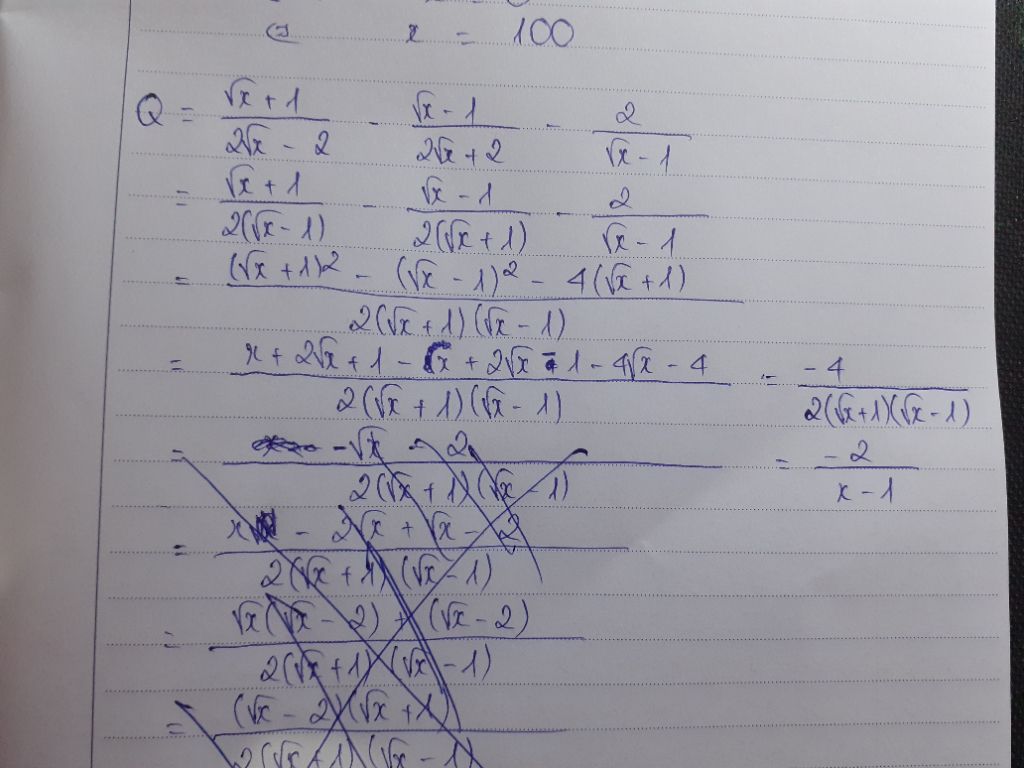 ⇔ x = 100
Q = (√x + 1)/(2√x - 2) - (√x - 1)/(2√x + 2) - 2/(√x - 1)
= (√x + 1)/(2(√x - 1)) - (√x - 1)/(2(√x + 1)) - 2/(√x - 1)
= ((√x + 1)² - (√x - 1)² - 4(√x + 1))/(2(√x + 1)(√x - 1))
= (x + 2√x + 1 - x + 2√x - 1 - 4√x - 4)/(2(√x + 1)(√x - 1)) = -4/(2(√x+1)(√x - 1))
= (-√x - 2)/(2(√x + 1)(√x - 1)) = -2/(x - 1)
= (x - 2√x + √x - 2)/(2(√x + 1)(√x - 1))
= (√x(√x - 2) + (√x - 2))/(2(√x + 1)(√x - 1))
= ((√x - 2)(√x + 1))/(2(√x + 1)(√x - 1))